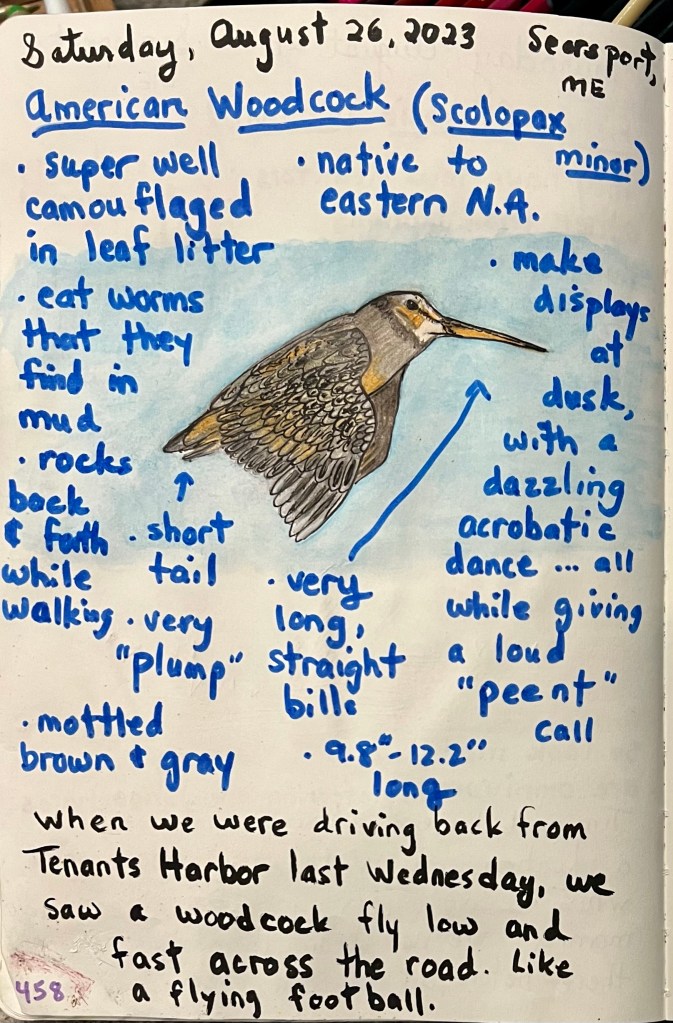 Saturday, August 26, 2023
Searsport,
ME
American Woodcock (Scolopax
minor)
• super well
camouflaged
in leaf litter
• native to
eastern N.A.
• eat worms
that they
find in
mud
• rocks
back
& forth
while
walking
• make
displays
at
dusk,
with a
dazzling
acrobatic
dance ... all
while giving
a loud
"peent"
call
• short
tail
• very
"plump"
• very
long,
straight
bills
• mottled
brown & gray
• 9.8"-12.2"
long
When we were driving back from
Tenants Harbor last Wednesday, we
saw a woodcock fly low and
fast across the road. Like
a flying football.
458